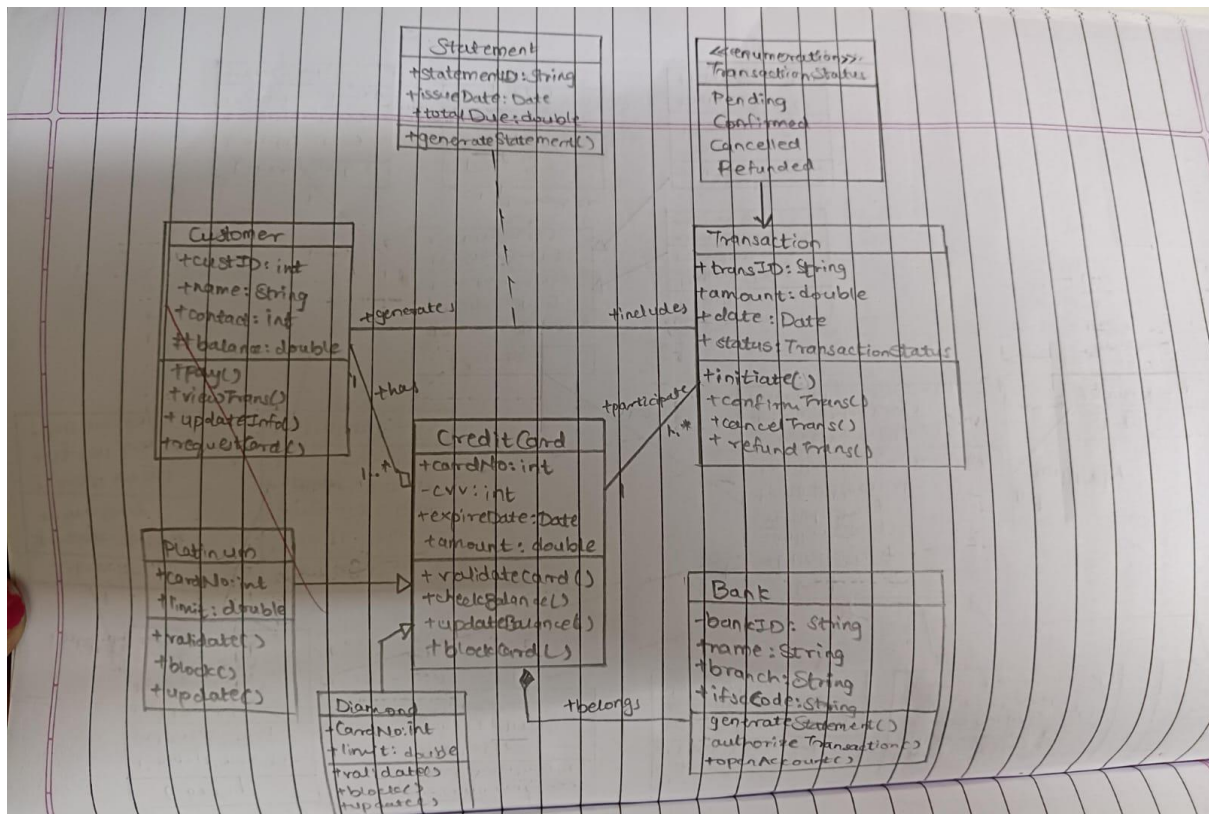 Statement
+statementID: String
+issueDate: Date
+totalDue: double
+generateStatement()
<<enumeration>>
TransactionStatus
Pending
Confirmed
Cancelled
Refunded
Customer
+custID: int
+name: String
+contact: int
#+balance: double
+pay()
+viewTrans()
+updateInfo()
+requestCard()
+generates
+includes
Transaction
+transID: String
+amount: double
+date: Date
+status: TransactionStatus
+initiate()
+confirmTrans()
+cancelTrans()
+refundTrans()
1
+has
1..*
+participate
1..*
CreditCard
+cardNo: int
-cvv: int
+expireDate: Date
+amount: double
+validateCard()
+checkBalance()
+updateBalance()
+blockCard()
Platinum
+cardNo: int
+limit: double
+validate()
+block()
+update()
Diamond
+CardNo: int
+limit: double
+validate()
+block()
+update()
+belongs
Bank
-bankID: String
+name: String
+branch: String
+ifscCode: String
generateStatement()
authorizeTransaction()
+openAccount()